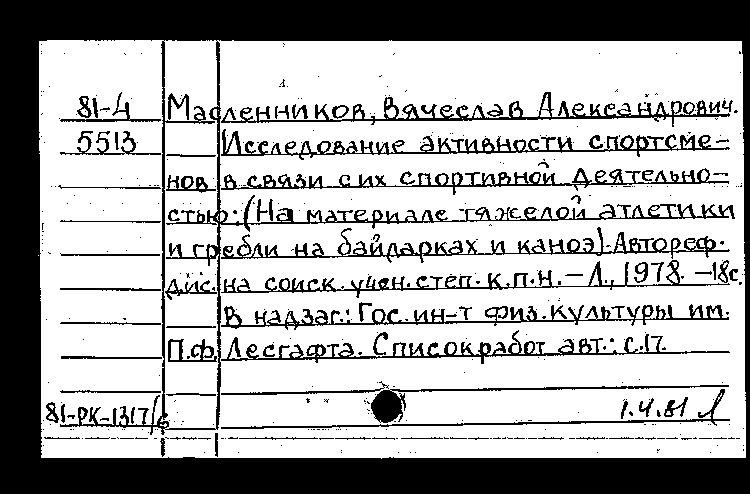 81-4 Масленников, Вячеслав Александрович.
5513 Исследование активности спортсме-
нов в связи с их спортивной деятельно-
стью: (На материале тяжелой атлетики
и гребли на байдарках и каноэ). Автореф.
дис. на соиск. учен. степ. к.п.н. - Л., 1978. - 18с.
В надзаг.: Гос. ин-т физ. культуры им.
П.Ф. Лесгафта. Список работ авт.: с.17.
81-РК-1317/б 1.4.81 Л